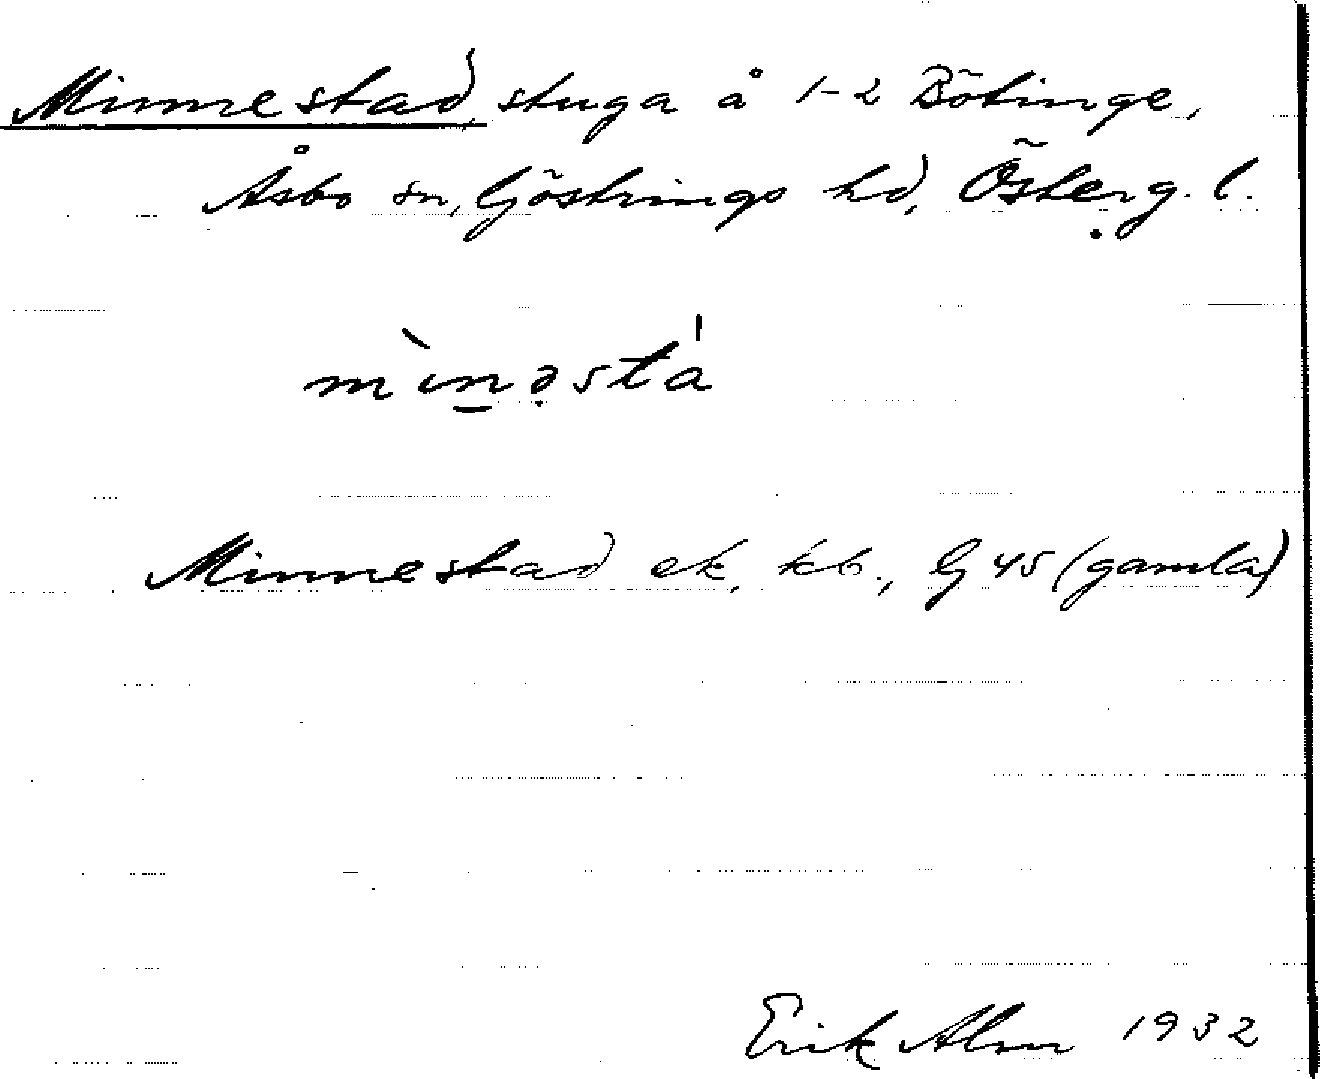 Minnestad, stuga å 1-2 Bötinge,
Åsbo sn, Göstrings hd, Österg. l.
mìnəstá
Minnestad ek. kb., G 45 (gamla)
Erik Alm 1932